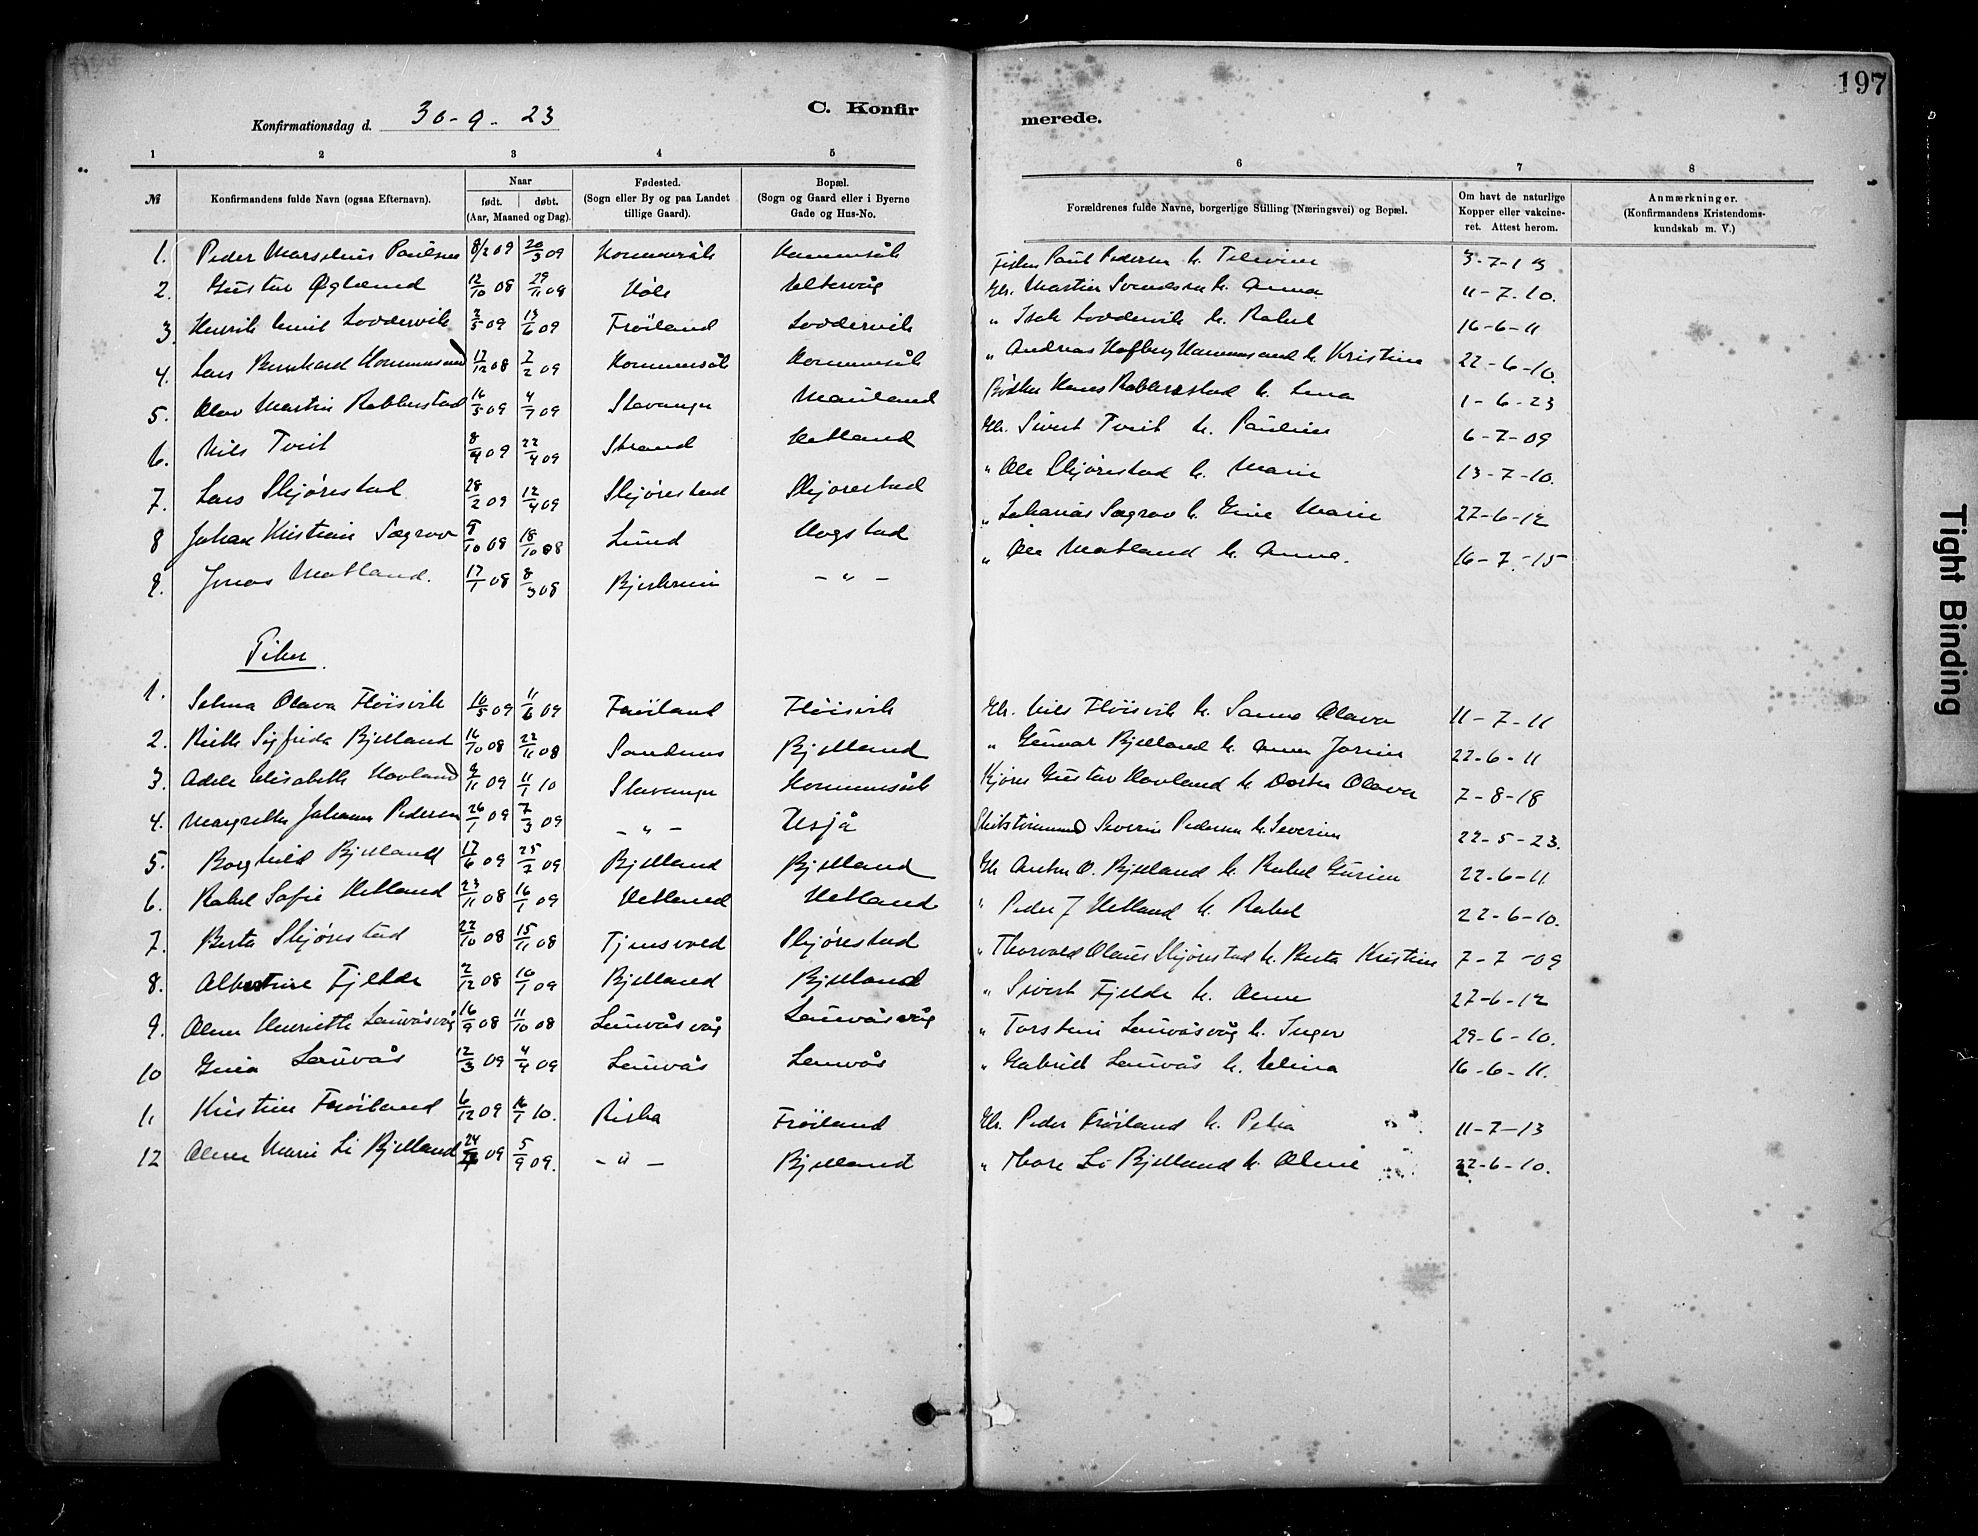 197
Konfirmationsdag d. 30-9-23
C. Konfir
merede.
1 2 3 4 5 6 7 8
№ Konfirmandens fulde Navn (ogsaa Efternavn). Naar født. døbt. (Aar, Maaned og Dag). Fødested. (Sogn eller By og paa Landet tillige Gaard). Bopæl. (Sogn og Gaard eller i Byerne Gade og Hus-No. Forældrenes fulde Navne, borgerlige Stilling (Næringsvei) og Bopæl. Om havt de naturlige Kopper eller vakcineret. Attest herom. Anmærkninger. (Konfirmandens Kristendomskundskab m. V.)
1. Peder Marselius Paulsen 8/2 09 20/3 09 Hommersåk Hommersåk Fisker Paul Pedersen h. 3-7-13
2. Gustav Øglænd 12/10 08 29/11 08 Høle Eltervåg Gbr. Martin Svendsen h. Anna 11-7.10.
3. Henrik Emil Loddervik 2/5 09 13/6 09 Frøiland Loddervik " Isak Loddervik h. Rakel 16-6-11
4. Lars Bernhard Hommersand 17/12 08 2/2 09 Hommersåk Hommersåk " Andreas Hommersand h. Kristine 22-6-10.
5. Olav Martin Rabberstad 16/5 09 4/7 09 Stavanger Mauland Bødker Hans Rabberstad h. Lena 1-6-23
6. Nils Tveit 8/4 09 22/4 09 Strand Hetland Gbr. Sivert Tveit h. Pauline 6-7-09
7. Lars Skjørestad 28/2 09 12/4 09 Skjørestad Skjørestad " Ole Skjørestad h. Marie 13-7-10.
8 Johan Kristian Sægrov 9/10 08 18/10 08 Lund Hogstad " Sægrov h. Gine Marie 27-6-12
9. Jonas Matland. 17/1 08 8/3 08 Bjerkreim - " - " Ole Matland h. Anna. 16-7-15
Piker.
1. Selma Olava Fløisvik 10/5 09 11/6 09 Frøiland Fløisvik Gbr. Nils Fløisvik h. Sanna Olava 11-7-11
2. Sigfrida Bjelland 16/10 08 22/11 08 Sandnes Bjelland " Gunnar Bjelland h. Anna Jorine 22-6-11
3. Adele Elisabeth Hovland 9/11 09 11/1 10 Stavanger Hommersåk Kjører Gustav Hovland h. Dorthe Olava 7-8-18
4. Margrethe Johanne Pedersen 26/1 09 7/3 09 - " - Usjå Skibstømmermand Severin Pedersen h. Severine 22-5-23.
5. Borghild Bjelland 17/6 09 25/7 09 Bjelland Bjelland Gbr Anton O. Bjelland h. Rakel Gurine 22-6-11
6. Rakel Sofie Hetland 23/11 08 16/1 09 Hetland Hetland " Peder J Hetland h. Rakel 22-6-10.
7. Berta Skjørestad 22/10 08 15/11 08 Tjensvold Skjørestad " Thorvald Olaus Skjørestad h. Berta Kristine 7-7-09
8. Albertine Fjelde 2/12 08 10/1 09 Bjelland Bjelland " Sivert Fjelde h. 27-6-12
9. Henriette Lauvåsvåg 16/9 08 11/10 08 Lauvåsvåg Lauvåsvåg " Torstein Lauvåsvåg h. Inger 29-6-10.
10 Gina Lauvås 12/3 09 4/4 09 Lauvås Lauvås " Gabriel Lauvås h. Elina 16-6-11.
11 Kristine Frøiland 6/12 09 16/1 10. Riska Frøiland Gbr. Peder Frøiland h. Petra 11-7-13
12 Marie Li Bjelland 24/7 09 5/9 09. - " - Bjelland " Thore Li Bjelland h. 22-6-10.
Tight Binding